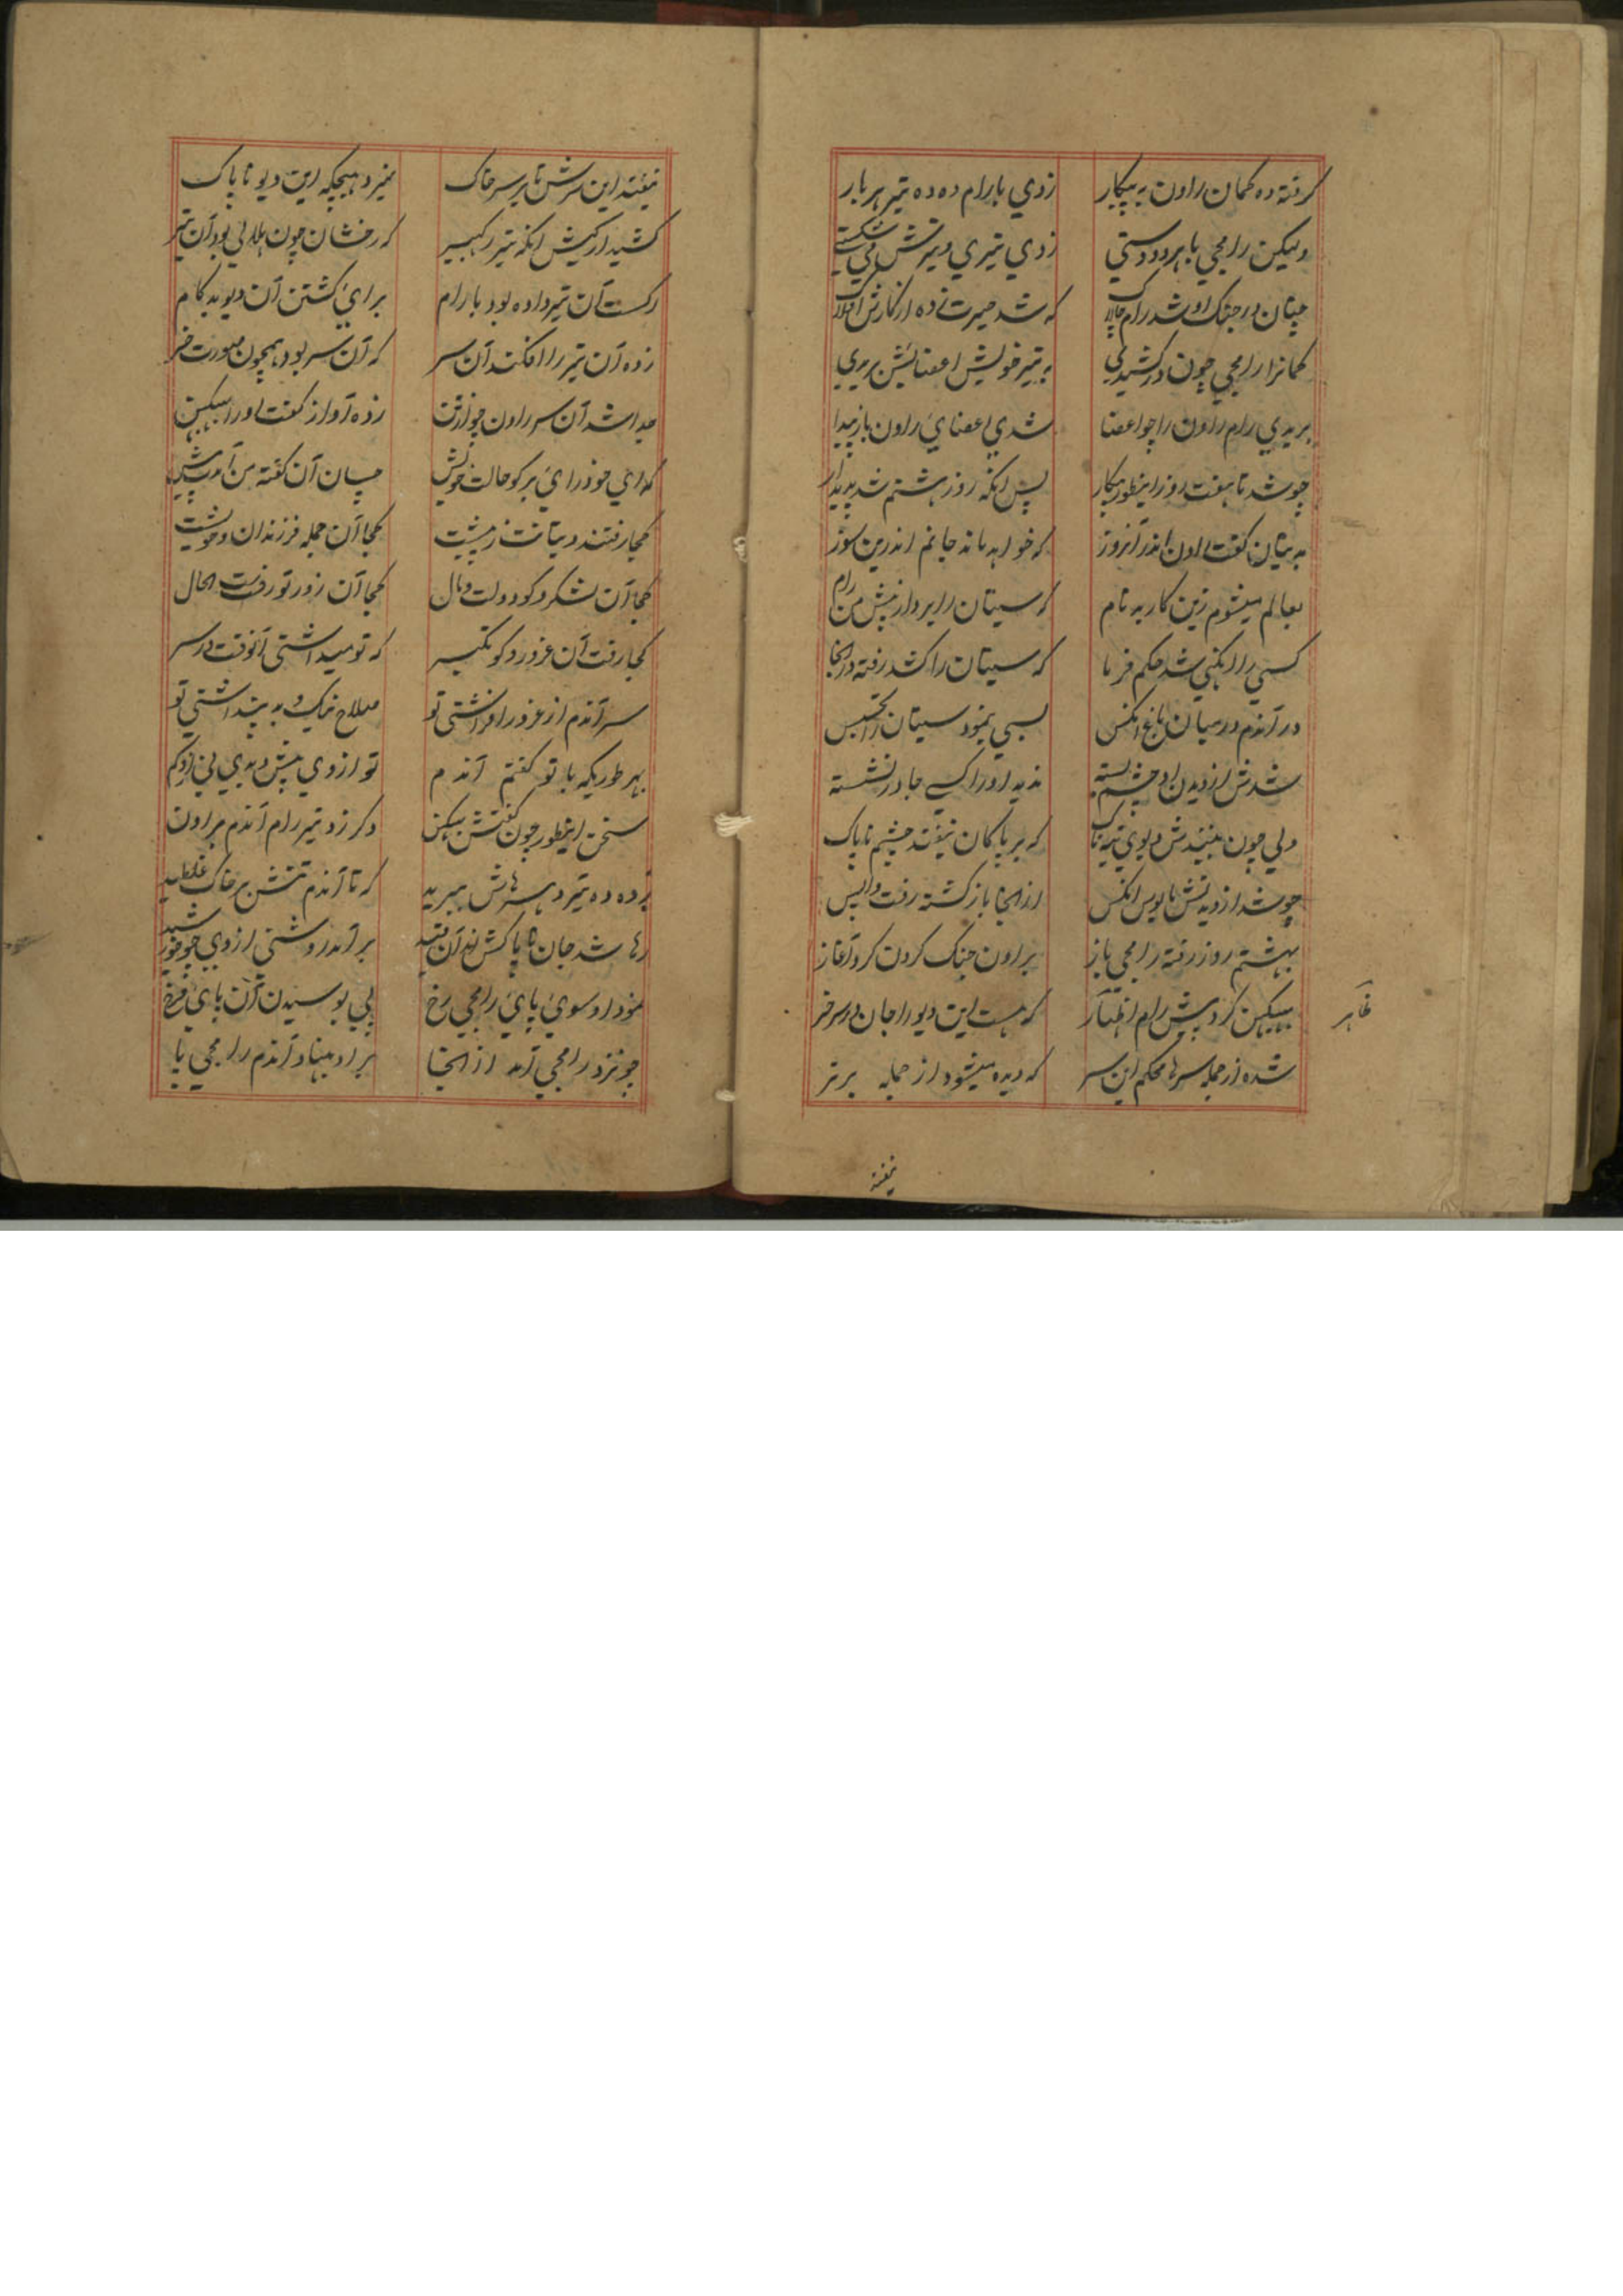 گرفته ده کمان راون به پیکار زدی بارام ده ده تیر هر بار
ولیکن رامجی باهر دو دستی زدی تیری و تیرش می شکستی
چنان در جنک او شد رام چالاک که شد حیرت زده از کارش افلاک
کمانرا رامجی چون در کشیدی به تیر خویش اعضایش بریدی
بریدی رام راون را چو اعضا شدی اعضای راون باز پیدا
چو شد تا هفت روز اینطور پیکار پس انکه روز هشتم شد پدیدار
به یتان گفت راون اندر آنروز که خواهد ماند جانم اندرین سوز
بعالم میشوم زین کار بد نام که سیتان را برد از پیش من رام
کسی را لیکنی شد حکم فرما که سیتان را کشد رفته در انجا
در آندم در میان باغ انکس بسی بنمود سیتان را تجسس
شدش از دیدن او چشم بسته ندید او را کسی جا در نشسته
ولی چون بیندش دیوی تبه ناک که بر پاکان نیفتد چشم ناپاک
چو شد از دیدنش مایوس انکس از انجا باز گشته رفت واپس
بهشتم روز رفته رامجی باز براون جنک کردن کرد آغاز
ببیکن کرد پیش رام اظهار که هست این دیو را جان در سر خر
ظاهر
شده از جمله سرها محکم این سر که دیده میشود از جمله برتر
نیفته
نیفته این سرش تا بر سر خاک نمیرد هیچکه این دیو ناپاک
کشید از کیش انکه تیر رکبیر که رخشان چون هلالی بود آن تیر
اکست آن تیر داده بود با رام برای کشتن آن دیو بد کام
زده آن تیر را افکند آن سر که آن سر بود همچون صورت خر
جدا شد آن سر راون چو از تن زده آواز گفت او را ببیکن
که ای خود رای بر کو حالت خویش چسان آن گفته من آمدت پیش
کجا رفتند دیتانت ز پیشت کجا آن جمله فرزندان و خویشت
کجا آن لشکر و کو دولت و مال کجا آن زور تو رفت است الحال
کجا رفت آن غرور و کو تکبر که تو میداشتی آنوقت در سر
سر آندم از غرور افراشتی تو صلاح نیک و بد پنداشتی تو
بهر طوریکه با تو گفتم آندم تو از وی پیش دیدی بی از و کم
سخن اینطور چون گفتش ببیکن دگر زد تیر رام آندم براون
زده ده تیر و سرهاش ببرید که تا آندم تنش بر خاک غلطید
رها شد جان ناپاکش از آن قید بر آمد روشنی از وی چو خورشید
نمود او سوی پای رامجی رخ پی بوسیدن آن پای فرخ
چو نزد رامجی آمد از انجا بر او بنهاد آندم رامجی پا